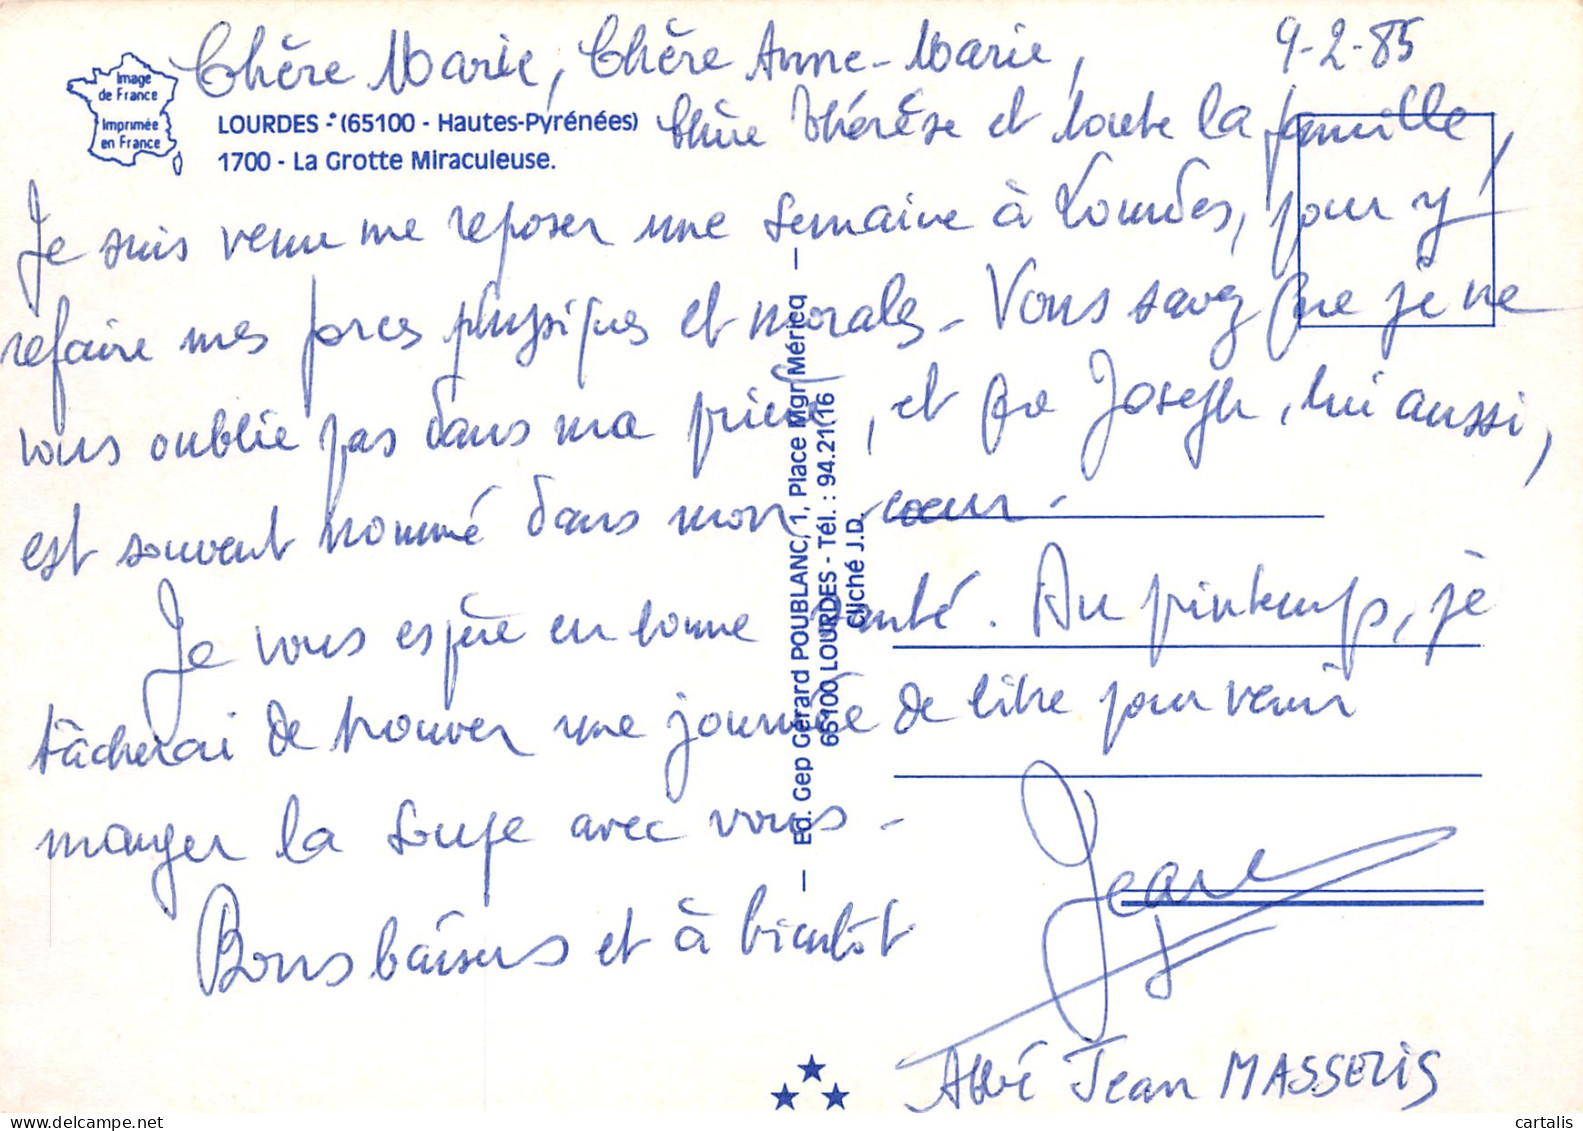 Chère Marie, Chère Anne-Marie,
9-2-85
Image
de France
Imprimée
en France
LOURDES - (65100 - Hautes-Pyrénées)
1700 - La Grotte Miraculeuse.
Chère Thérèse et toute la famille,
Je suis venu me reposer une semaine à Lourdes, pour y
refaire mes forces physiques et morales - Vous savez que je ne
vous oublie pas dans ma prière, et que Joseph, lui aussi,
est souvent nommé dans mon cœur -
Je vous espère en bonne santé. Au printemps, je
tâcherai de trouver une journée de libre pour venir
manger la soupe avec vous -
Bons baisers et à bientôt
Jean
Abbé Jean MASSELIS
— Ed. Gep Gérard POUBLANC, 1, Place Mgr Méricq —
65100 LOURDES - Tél. : 94.21.16
Cliché J.D.
cartalis